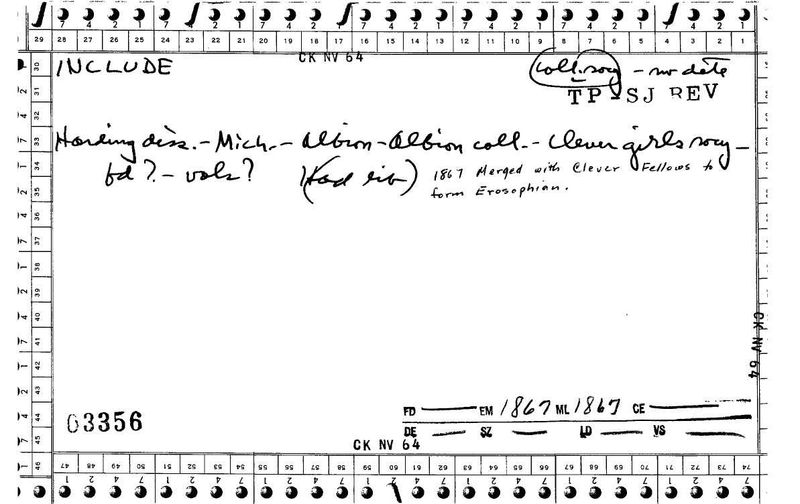 29 28 27 26 25 24 23 22 21 20 19 18 17 16 15 14 13 12 11 10 9 8 7 6 5 4 3 2 1
CK NV 64
INCLUDE
coll. socy - no date
TP-SJ REV
Harding diss. - Mich. - Albion - Albion coll. - Clever girls socy -
fd ? - vols ? (Had lib)
1867 Merged with Clever Fellows to
form Erosophian.
CK NV 64
03356
FD EM 1867 ML 1867 CE
DE SZ LD VS
CK NV 64
47 48 49 50 51 52 53 54 55 56 57 58 59 60 61 62 63 64 65 66 67 68 69 70 71 72 73 74